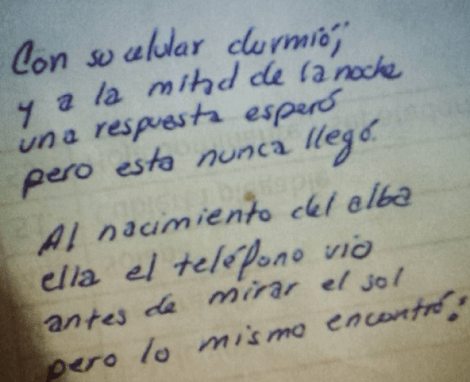 Con su celular durmió;
y a la mitad de la noche
una respuesta esperó
pero esta nunca llegó.
Al nacimiento del alba
ella el teléfono vio
antes de mirar el sol
pero lo mismo encontró: